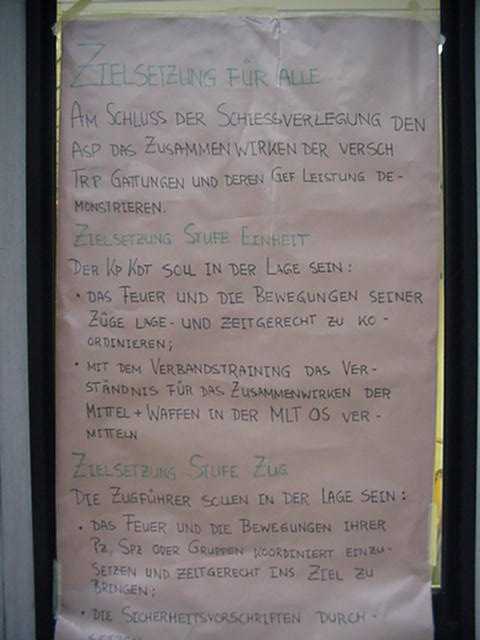 ZIELSETZUNG FÜR ALLE
AM SCHLUSS DER SCHIESSVERLEGUNG DEN
ASP DAS ZUSAMMENWIRKEN DER VERSCH
TRP GATTUNGEN UND DEREN GEF LEISTUNG DE-
MONSTRIEREN.
ZIELSETZUNG STUFE EINHEIT
DER KP KDT SOLL IN DER LAGE SEIN:
• DAS FEUER UND DIE BEWEGUNGEN SEINER
ZÜGE LAGE- UND ZEITGERECHT ZU KO-
ORDINIEREN;
• MIT DEM VERBANDSTRAINING DAS VER-
STÄNDNIS FÜR DAS ZUSAMMENWIRKEN DER
MITTEL + WAFFEN IN DER MLT OS VER-
MITTELN
ZIELSETZUNG STUFE ZUG
DIE ZUGFÜHRER SOLLEN IN DER LAGE SEIN:
• DAS FEUER UND DIE BEWEGUNGEN IHRER
PZ, SPZ ODER GRUPPEN KOORDINIERT EINZU-
SETZEN UND ZEITGERECHT INS ZIEL ZU
BRINGEN;
• DIE SICHERHEITSVORSCHRIFTEN DURCH-
SETZEN